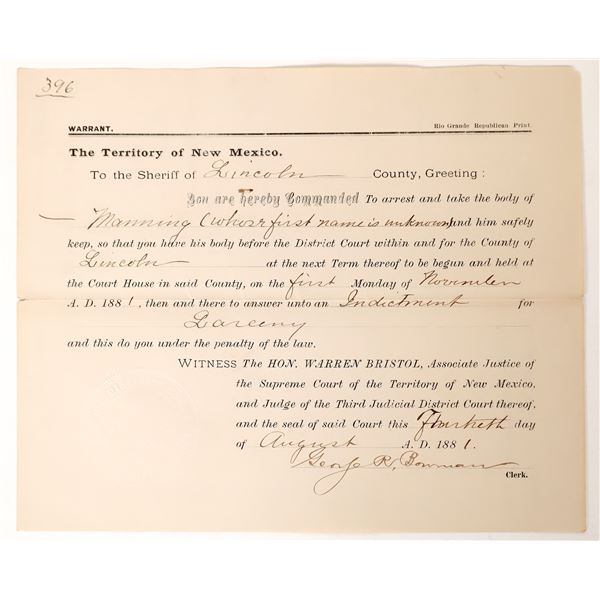 396
WARRANT. Rio Grande Republican Print.
The Territory of New Mexico.
To the Sheriff of Lincoln County, Greeting:
You are hereby Commanded To arrest and take the body of
Manning (whose first name is unknown) and him safely
keep, so that you have his body before the District Court within and for the County of
Lincoln at the next Term thereof to be begun and held at
the Court House in said County, on the first Monday of November
A. D. 1881, then and there to answer unto an Indictment for
Larceny
and this do you under the penalty of the law.
WITNESS THE HON. WARREN BRISTOL, Associate Justice of
the Supreme Court of the Territory of New Mexico,
and Judge of the Third Judicial District Court thereof,
and the seal of said Court this day
of August A. D. 1881.
George R. Bowman
Clerk.